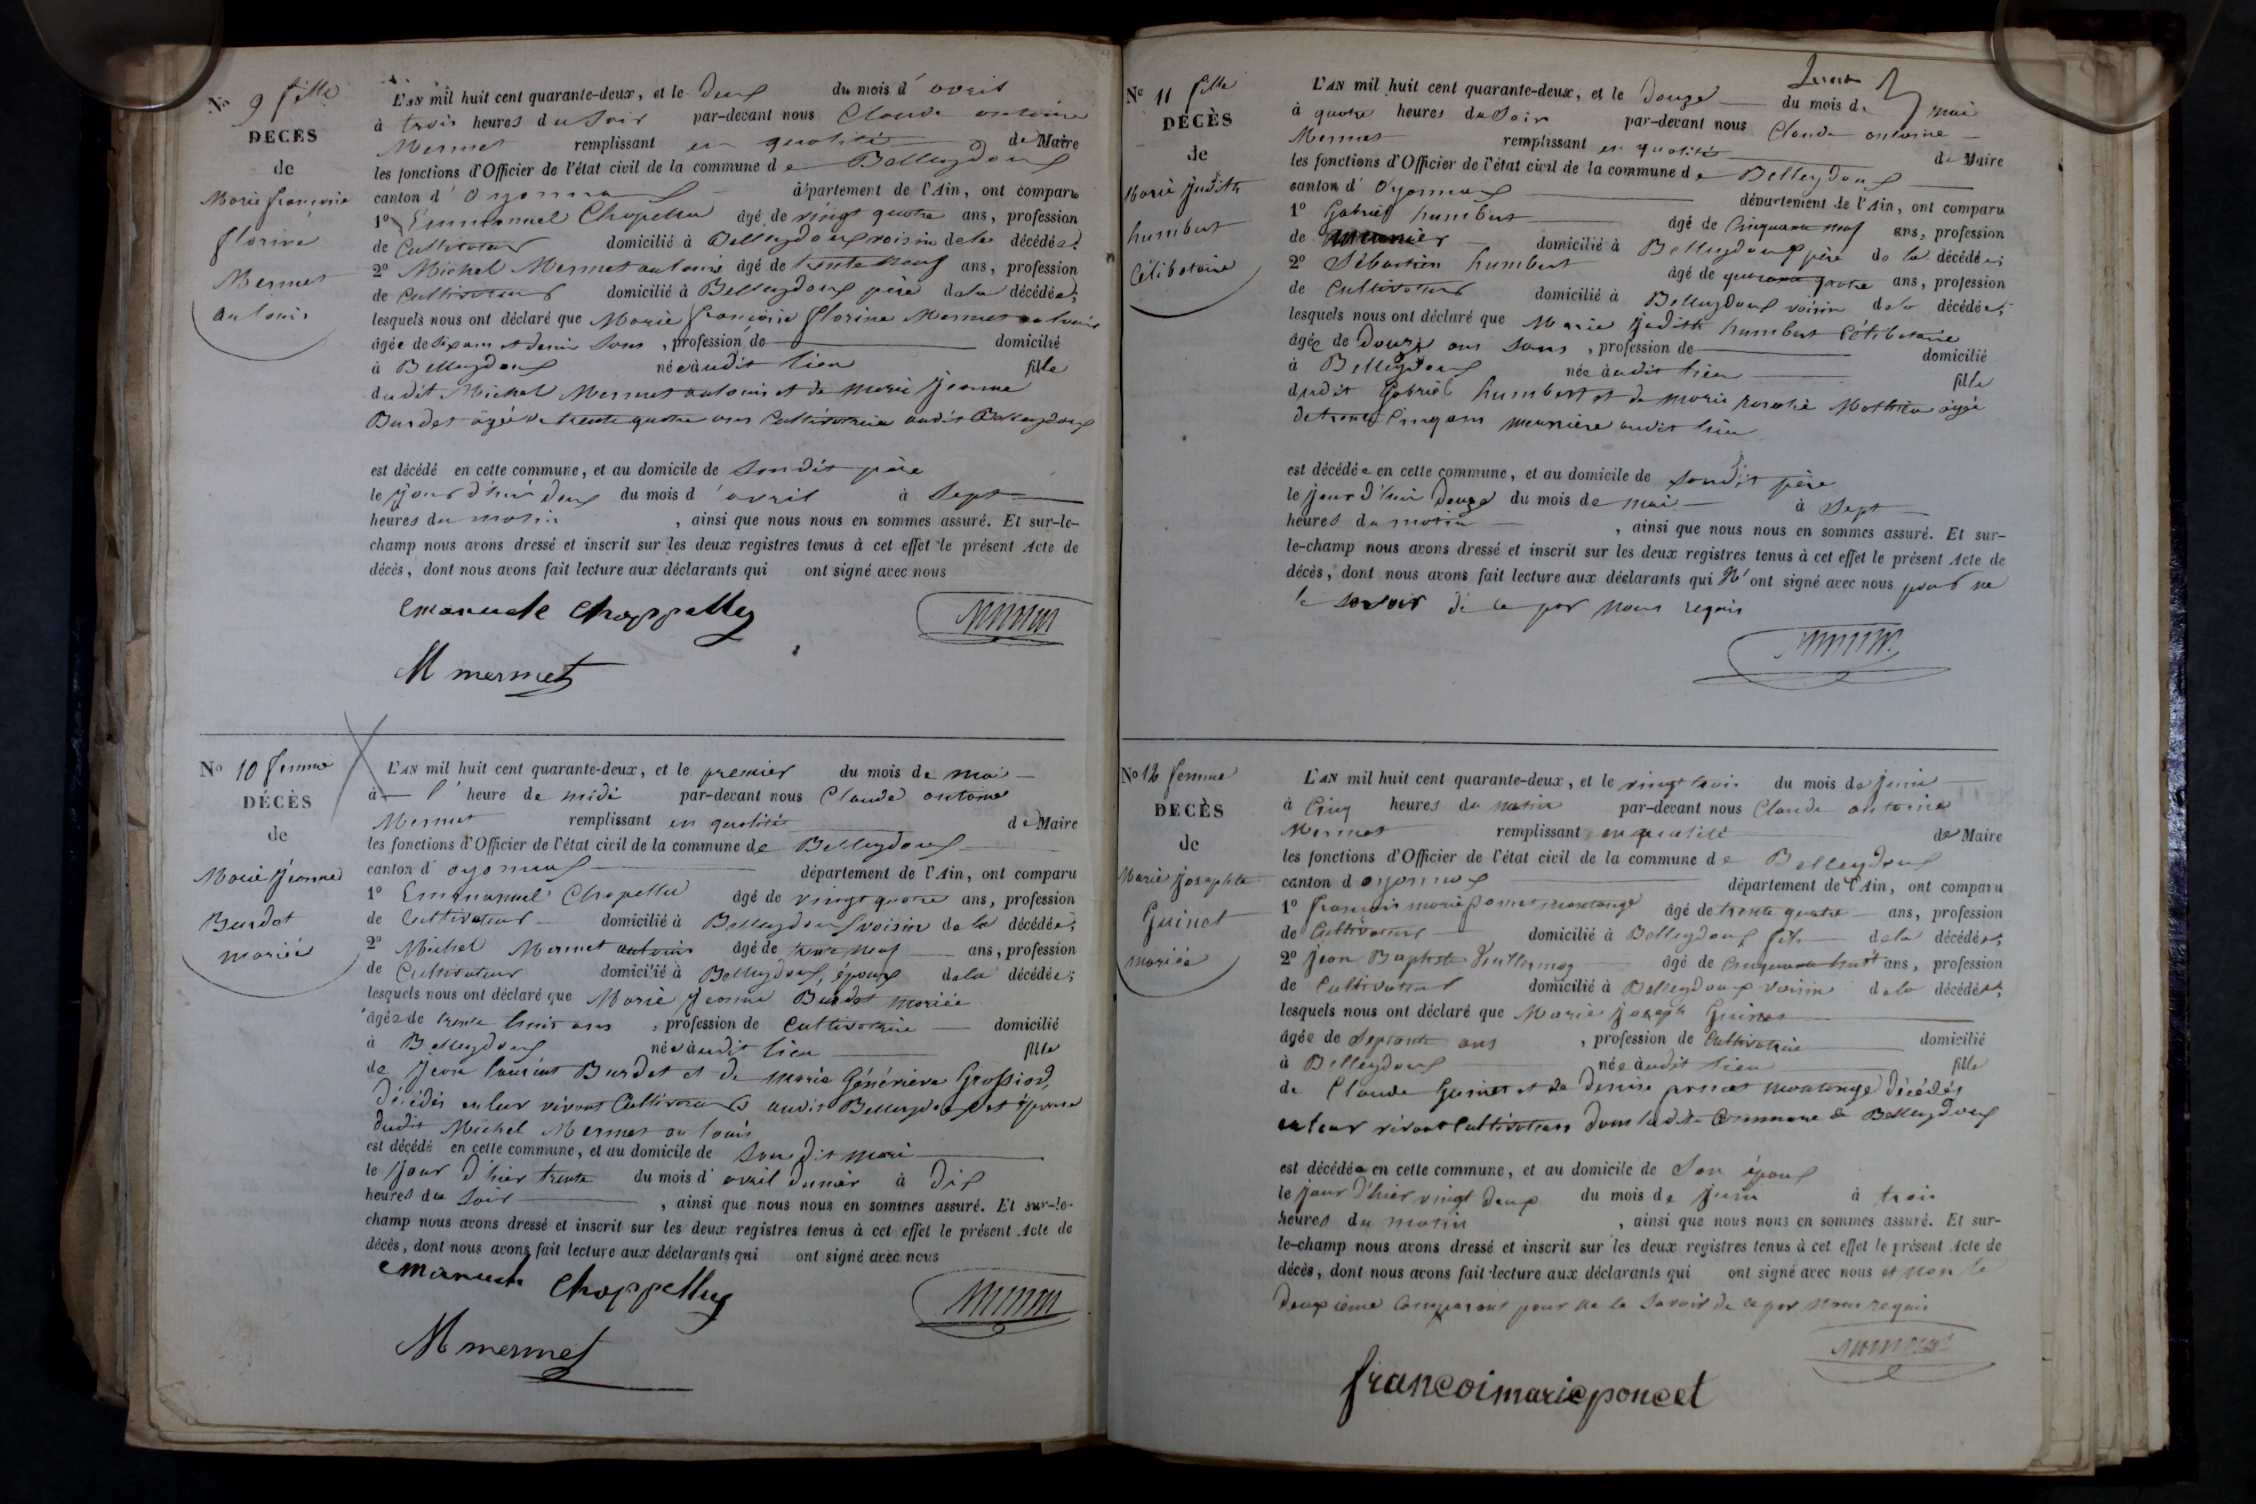 No 9 fille
DÉCÈS
de
Marie françoise
florine
Mermet
autouis
L'AN mil huit cent quarante-deux, et le deux du mois d'avril
à trois heures du soir par-devant nous Claude antoine
Mermet remplissant en qualité de Maire
les fonctions d'Officier de l'état civil de la commune de Belleydoux
canton d'Oyonnax département de l'Ain, ont comparu
1º Emmanuel Chapellu âgé de vingt quatre ans, profession
de Cultivateur domicilié à Belleydoux voisin de la décédée;
2º Michel Mermet autouis âgé de trente neuf ans, profession
de Cultivateur domicilié à Belleydoux père de la décédée;
lesquels nous ont déclaré que Marie françoise florine Mermet autouis
âgée de six ans et demi sans, profession de domicilié
à Belleydoux née audit lieu fille
dudit Michel Mermet autouis et de Marie Jeanne
Burdet âgée de trente quatre ans Cultivatrice audit Belleydoux
est décédé en cette commune, et au domicile de son dit père
le jour d'hui deux du mois d'avril à sept
heures du matin, ainsi que nous nous en sommes assuré. Et sur-le-
champ nous avons dressé et inscrit sur les deux registres tenus à cet effet le présent Acte de
décès, dont nous avons fait lecture aux déclarants qui ont signé avec nous
emanuele Chappelluz
M mermet
No 10 femme
DÉCÈS
de
Marie Jeanne
Burdet
mariée
L'AN mil huit cent quarante-deux, et le premier du mois de mai
à l'heure de midi par-devant nous Claude antoine
Mermet remplissant en qualité de Maire
les fonctions d'Officier de l'état civil de la commune de Belleydoux
canton d'oyonnax département de l'Ain, ont comparu
1º Emmanuel Chapellu âgé de vingt quatre ans, profession
de Cultivateur domicilié à Belleydoux voisin de la décédée;
2º Michel Mermet autouis âgé de trente neuf ans, profession
de Cultivateur domicilié à Belleydoux époux de la décédée;
lesquels nous ont déclaré que Marie Jeanne Burdet mariée
âgée de trente huit ans, profession de Cultivatrice domicilié
à Belleydoux née audit lieu fille
de Jean laurent Burdet et de marie Généviève Grossiord,
décédés en leur vivant Cultivateurs audit Belleydoux et épouse
dudit Michel Mermet autouis
est décédé en cette commune, et au domicile de son dit mari
le jour d'hier trente du mois d'avril dernier à dix
heures du soir, ainsi que nous nous en sommes assuré. Et sur-le-
champ nous avons dressé et inscrit sur les deux registres tenus à cet effet le présent Acte de
décès, dont nous avons fait lecture aux déclarants qui ont signé avec nous
emanuele Chappelluz
M mermet
No 11 fille
DÉCÈS
de
Marie Judith
humbert
Célibataire
L'AN mil huit cent quarante-deux, et le douze du mois de mai
à quatre heures du soir par-devant nous Claude antoine
Mermet remplissant en qualité de Maire
les fonctions d'Officier de l'état civil de la commune de Belleydoux
canton d'Oyonnax département de l'Ain, ont comparu
1º Gabriel humbert âgé de Cinquante neuf ans, profession
de meunier domicilié à Belleydoux père de la décédée;
2º Sébastien humbert âgé de quarante quatre ans, profession
de Cultivateur domicilié à Belleydoux voisin de la décédée;
lesquels nous ont déclaré que Marie Judith humbert Célibataire
âgée de douze ans sans, profession de domicilié
à Belleydoux née audit lieu fille
dudit Gabriel humbert et de marie rosalie Mathieu âgée
de trente Cinq ans meunière audit lieu
est décédée en cette commune, et au domicile de sondit père
le jour d'hui douze du mois de mai à sept
heures du matin, ainsi que nous nous en sommes assuré. Et sur-
le-champ nous avons dressé et inscrit sur les deux registres tenus à cet effet le présent Acte de
décès, dont nous avons fait lecture aux déclarants qui N'ont signé avec nous pour ne
le savoir de ce par nous requis
No 12 femme
DÉCÈS
de
Marie Josephte
Guinet
mariée
L'AN mil huit cent quarante-deux, et le vingt trois du mois de juin
à Cinq heures du matin par-devant nous Claude antoine
Mermet remplissant en qualité de Maire
les fonctions d'Officier de l'état civil de la commune de Belleydoux
canton d oyonnax département de l'Ain, ont comparu
1º françois marie poncet montange âgé de trente quatre ans, profession
de Cultivateur domicilié à Belleydoux fils de la décédée;
2º Jean Baptiste Vuillermoz âgé de Cinquante huit ans, profession
de Cultivateur domicilié à Belleydoux voisin de la décédée;
lesquels nous ont déclaré que Marie Joseph Guinet
âgée de septante ans, profession de Cultivatrice domicilié
à Belleydoux née audit lieu fille
de Claude Guinet et de denise poncet montange décédés
en leur vivant Cultivateurs dans ladite Commune de Belleydoux
est décédée en cette commune, et au domicile de son époux
le jour d'hier vingt deux du mois de juin à trois
heures du matin, ainsi que nous nous en sommes assuré. Et sur-
le-champ nous avons dressé et inscrit sur les deux registres tenus à cet effet le présent Acte de
décès, dont nous avons fait lecture aux déclarants qui ont signé avec nous et non le
deuxième Comparant pour ne le savoir de ce par nous requis
francoimarieponcet